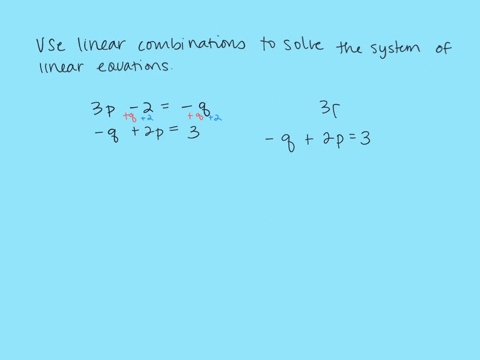 Use linear combinations to solve the system of
linear equations.
3p - 2 = -q
+q +2 +q +2
-q + 2p = 3
3p
-q + 2p = 3